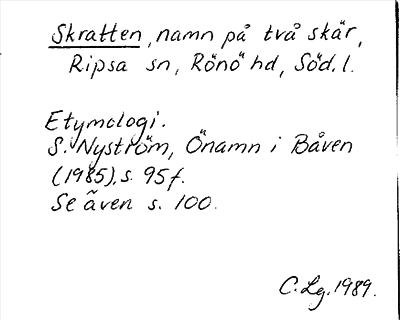 Skratten, namn på två skär,
Ripsa sn, Rönö hd, Söd. l.
Etymologi.
S. Nyström, Önamn i Båven
(1985), s. 95f.
Se även s. 100.
C. Lg. 1989.